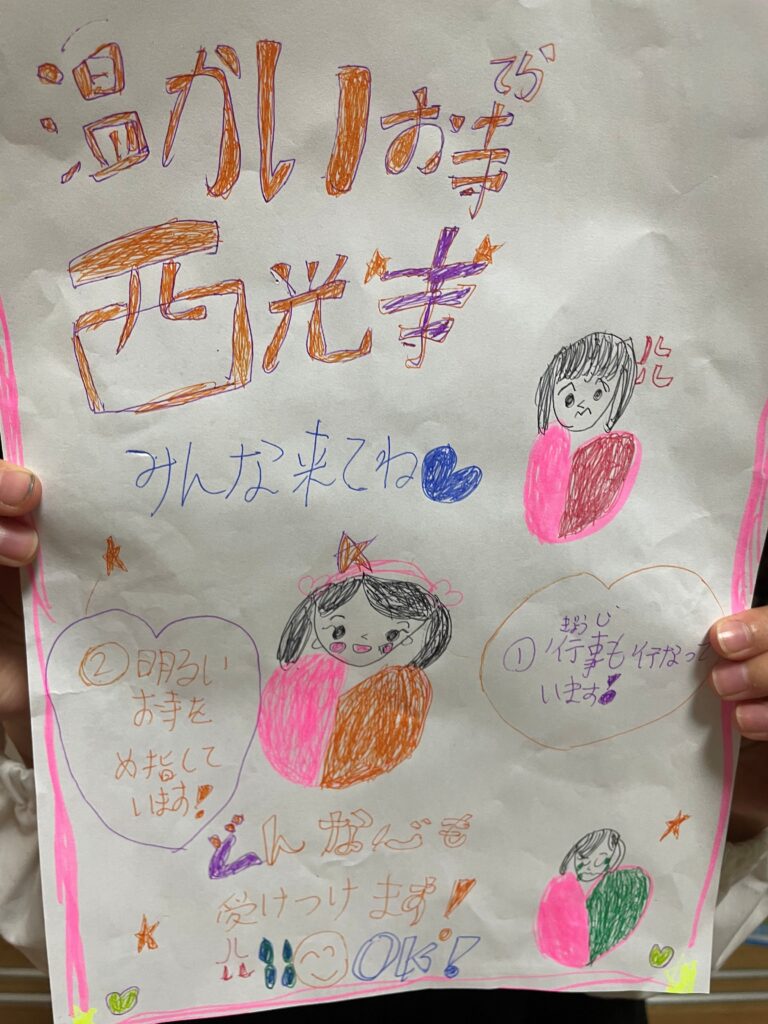 てら
温かいお寺
西光寺
みんな来てね
ぎょうじ
①行事も行なって
います!
②明るい
お寺を
め指して
います!
どんな心も
受けつけます!
OK!